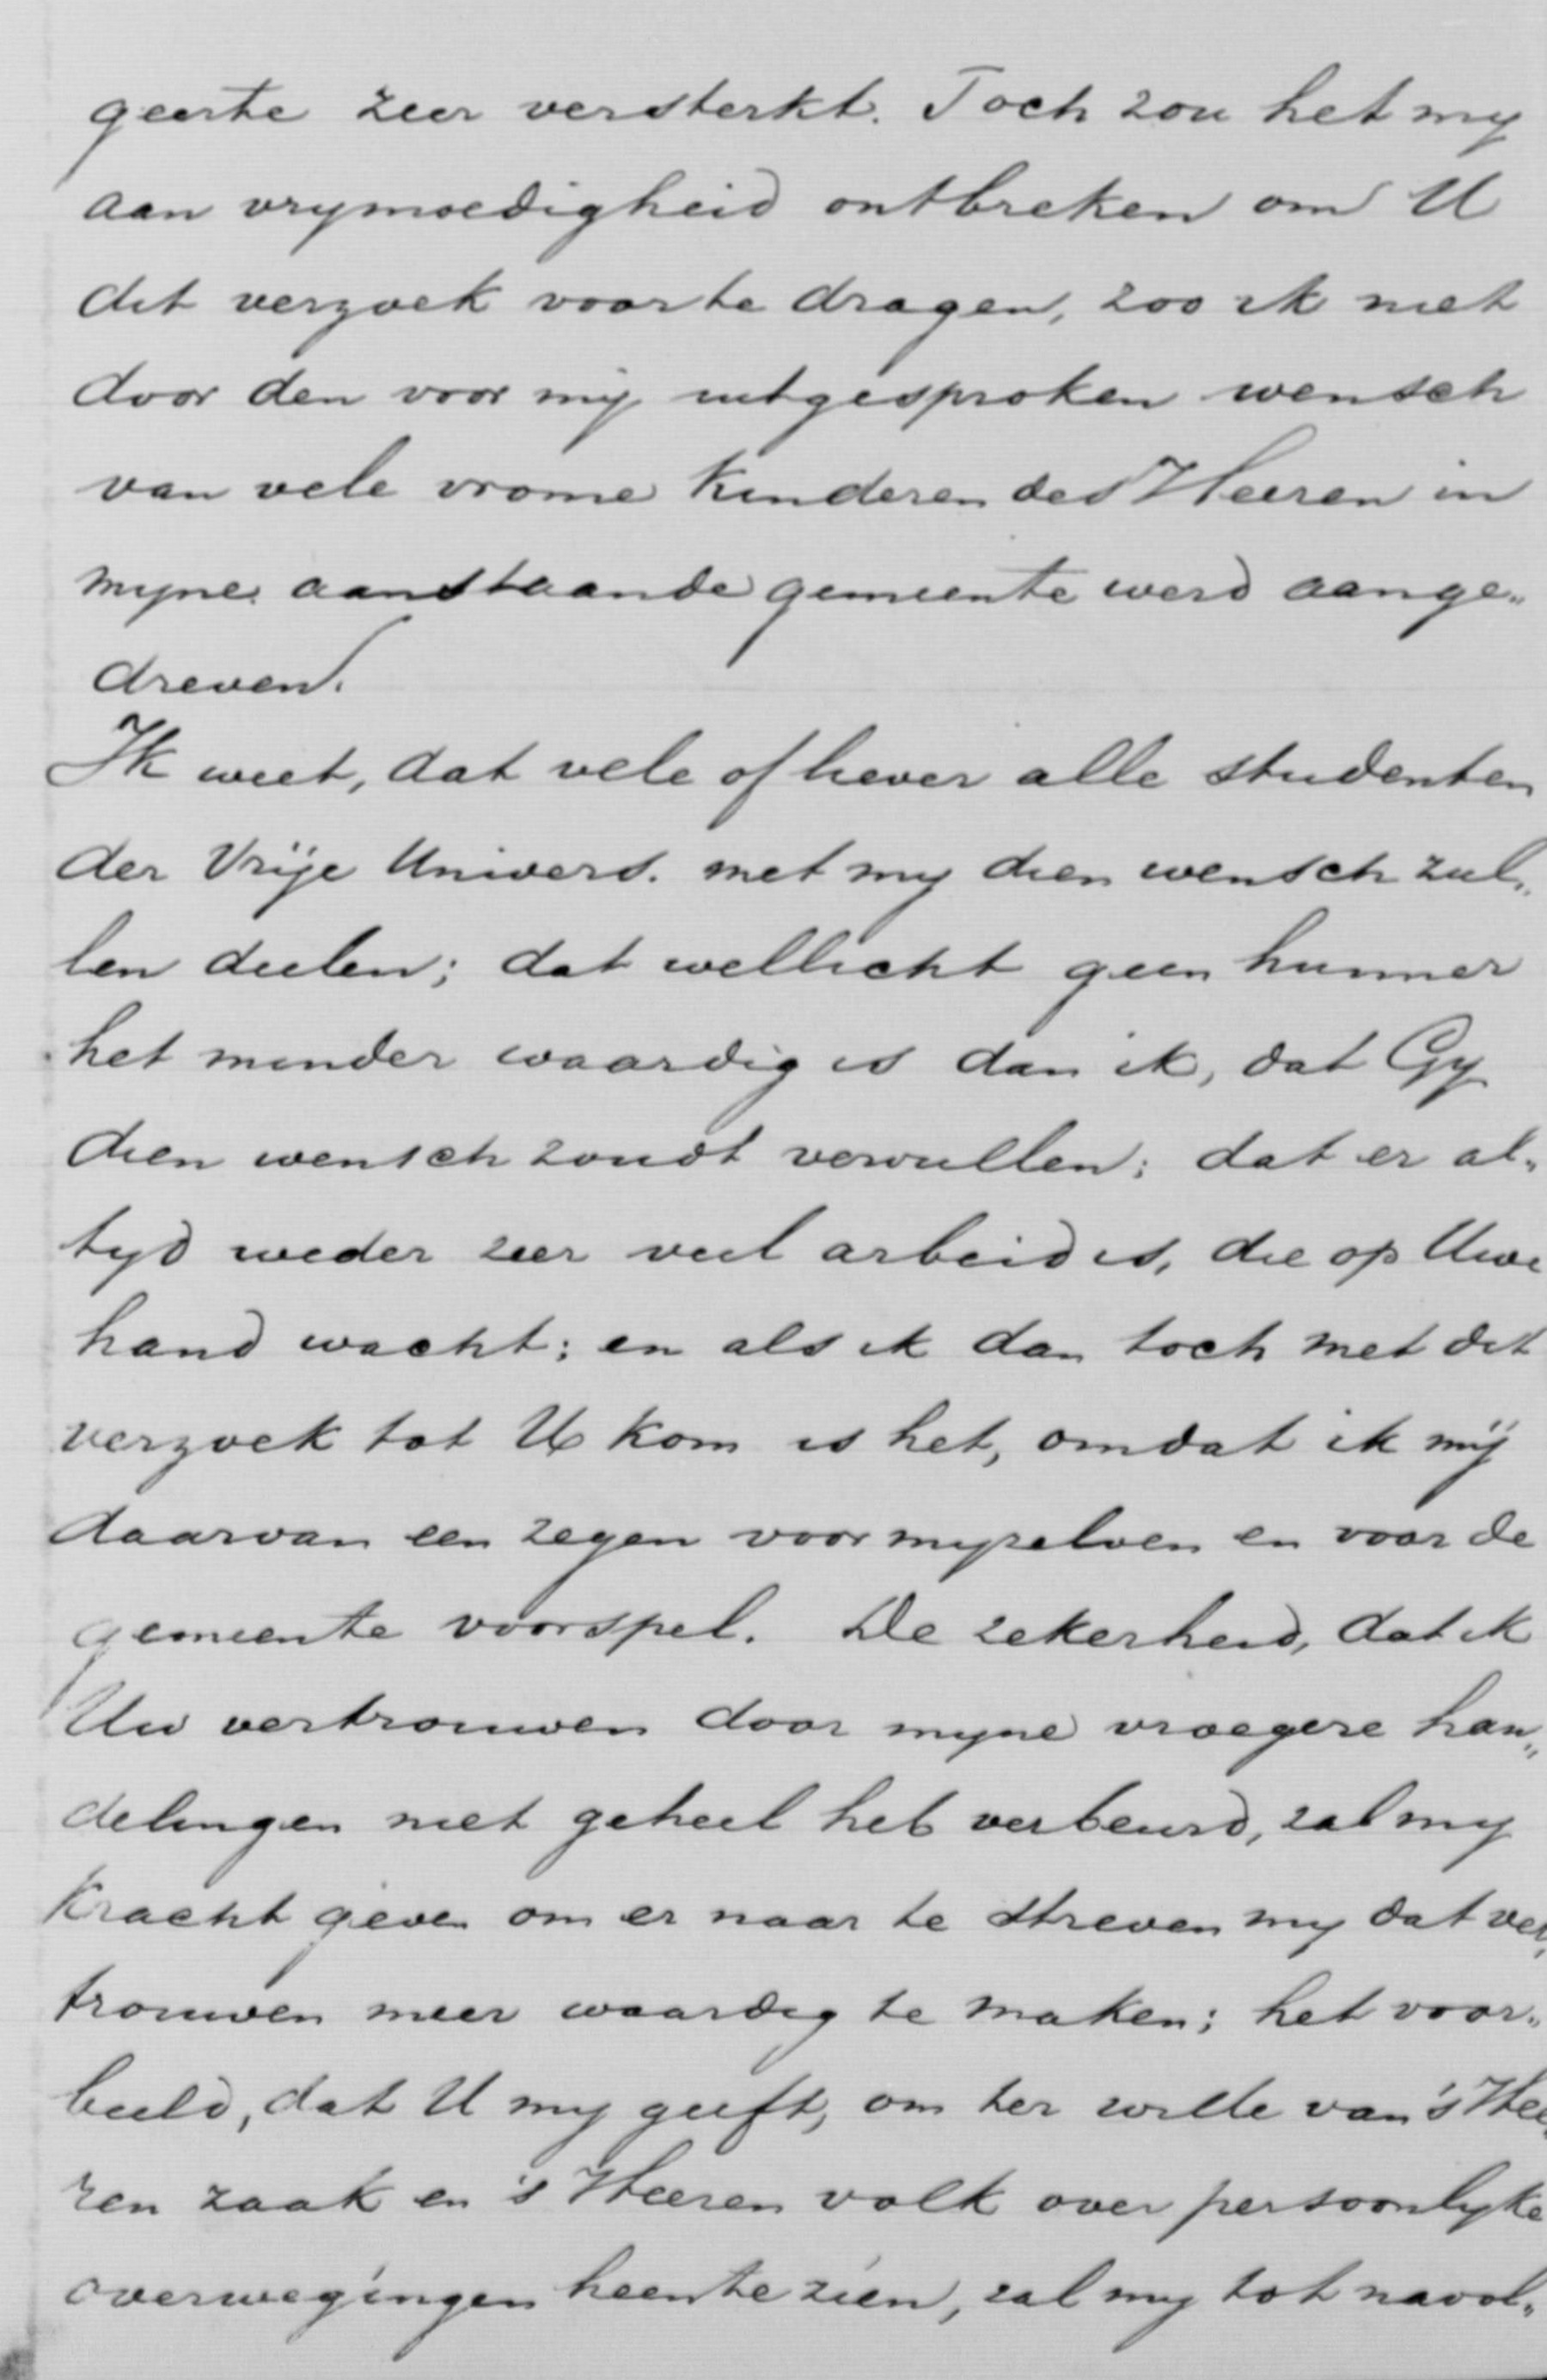 geeste zeer versterkt. Toch zou het my
aan vrymoedigheid ontbreken om U
dit verzoek voor te dragen, zoo ik niet
door den voor mij uitgesproken wensch
van vele vrome kinderen des Heeren in
myne aanstaande gemeente werd aange„
dreven.
Ik weet, dat vele of liever alle studenten
der Vrije Univers. met my dien wensch zul„
len deelen; dat wellicht geen hunner
het minder waardig is dan ik, dat Gy
dien wensch zoudt vervullen; dat er al„
tyd weder zeer veel arbeid is, die op Uwe
hand wacht; en als ik dan toch met dit
verzoek tot U kom is het, omdat ik mij
daarvan een zegen voor myzelven en voor de
gemeente voorspel. De zekerheid, dat ik
Uw vertrouwen door myne vroegere han„
delingen niet geheel heb verbeurd, zal my
kracht geven om er naar te streven my dat ver„
trouwen meer waardig te maken; het voor„
beeld, dat U my geeft, om ter wille van 's Hee„
ren zaak en 's Heeren volk over persoonlyke
overwegingen heen te zien, zal my tot navol„